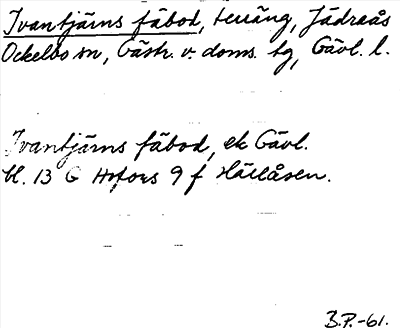 Ivantjärns fäbod, terräng, Jädraås
Ockelbo sn, Gästr. v. doms. tg, Gävl. l.
Ivantjärns fäbod, ek Gävl.
bl. 13 G Hofors 9 f Hällåsen.
B.P.-61.